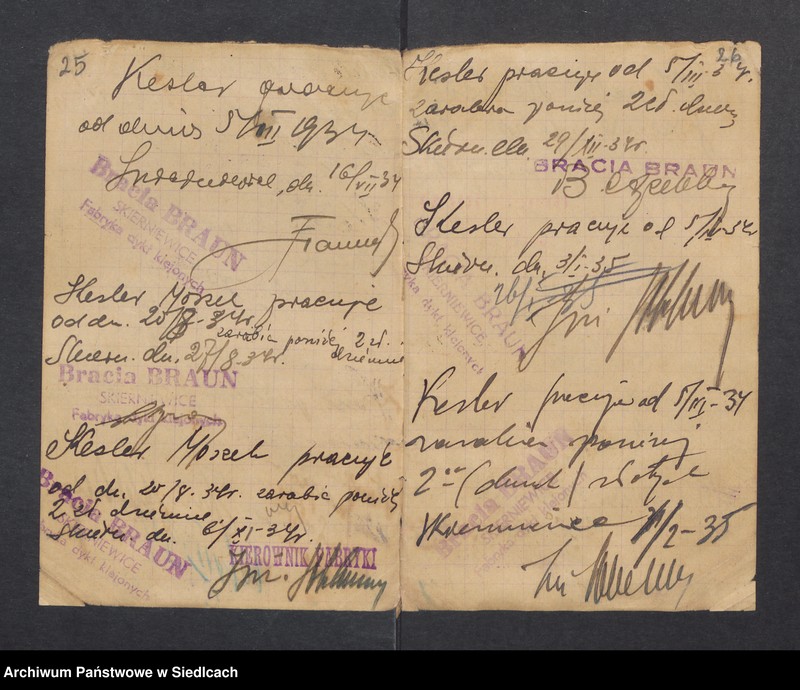 25
Kesler pracuje
od dnia 5/VII 1934
Skierniewice, dn. 16/VII 34
Bracia BRAUN
SKIERNIEWICE
Fabryka dykt klejonych
Kesler Moszek pracuje
od dn. 20/8-34r.
zarabia poniżej 2 zł.
dziennie
Skiern. dn. 27/8-34r.
Bracia BRAUN
SKIERNIEWICE
Fabryka dykt klejonych
Kesler Moszek pracuje
od dn. 20/8-34r. zarabia poniżej
2 zł. dziennie
Skiern. dn. 6/XI-34r.
Bracia BRAUN
SKIERNIEWICE
Fabryka dykt klejonych
KIEROWNIK FABRYKI
Inż.
26
Kesler pracuje od 5/III-34r.
zarabia poniżej 2 zł. dzien.
Skiern. dn. 29/XII-34r.
BRACIA BRAUN
Kesler pracuje od 5/III-34r
Skiern. dn. 3/I-35
BRAUN
SKIERNIEWICE
Fabryka dykt klejonych
Inż.
Kesler pracuje od 5/III-34
zarabia poniżej
2 (dwuch) złotych
Skierniewice /2-35
BRAUN
Inż.
Archiwum Państwowe w Siedlcach